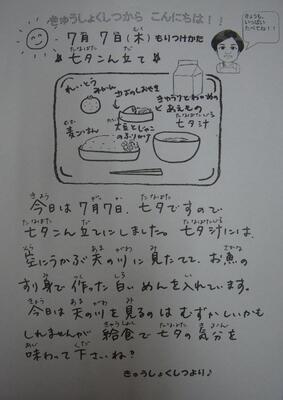 きゅうしょくしつから こんにちは！！
きょうも、
いっぱい
たべてね！！
7月7日(木) もりつけかた
七夕こん立て
れいとう
みかん
きゅうりとわかめの
あえもの
七夕汁
麦ごはん
大豆とじゃこ
のふりかけ
今日は7月7日、七夕ですので
七夕こん立てにしました。七夕汁には、
空にうかぶ天の川に見たてて、お魚の
すり身で作った白いめんを入れています。
今日は天の川を見るのはむずかしいかも
しれませんが給食で七夕の気分を
味わって下さいね？
きゅうしょくしつより♪